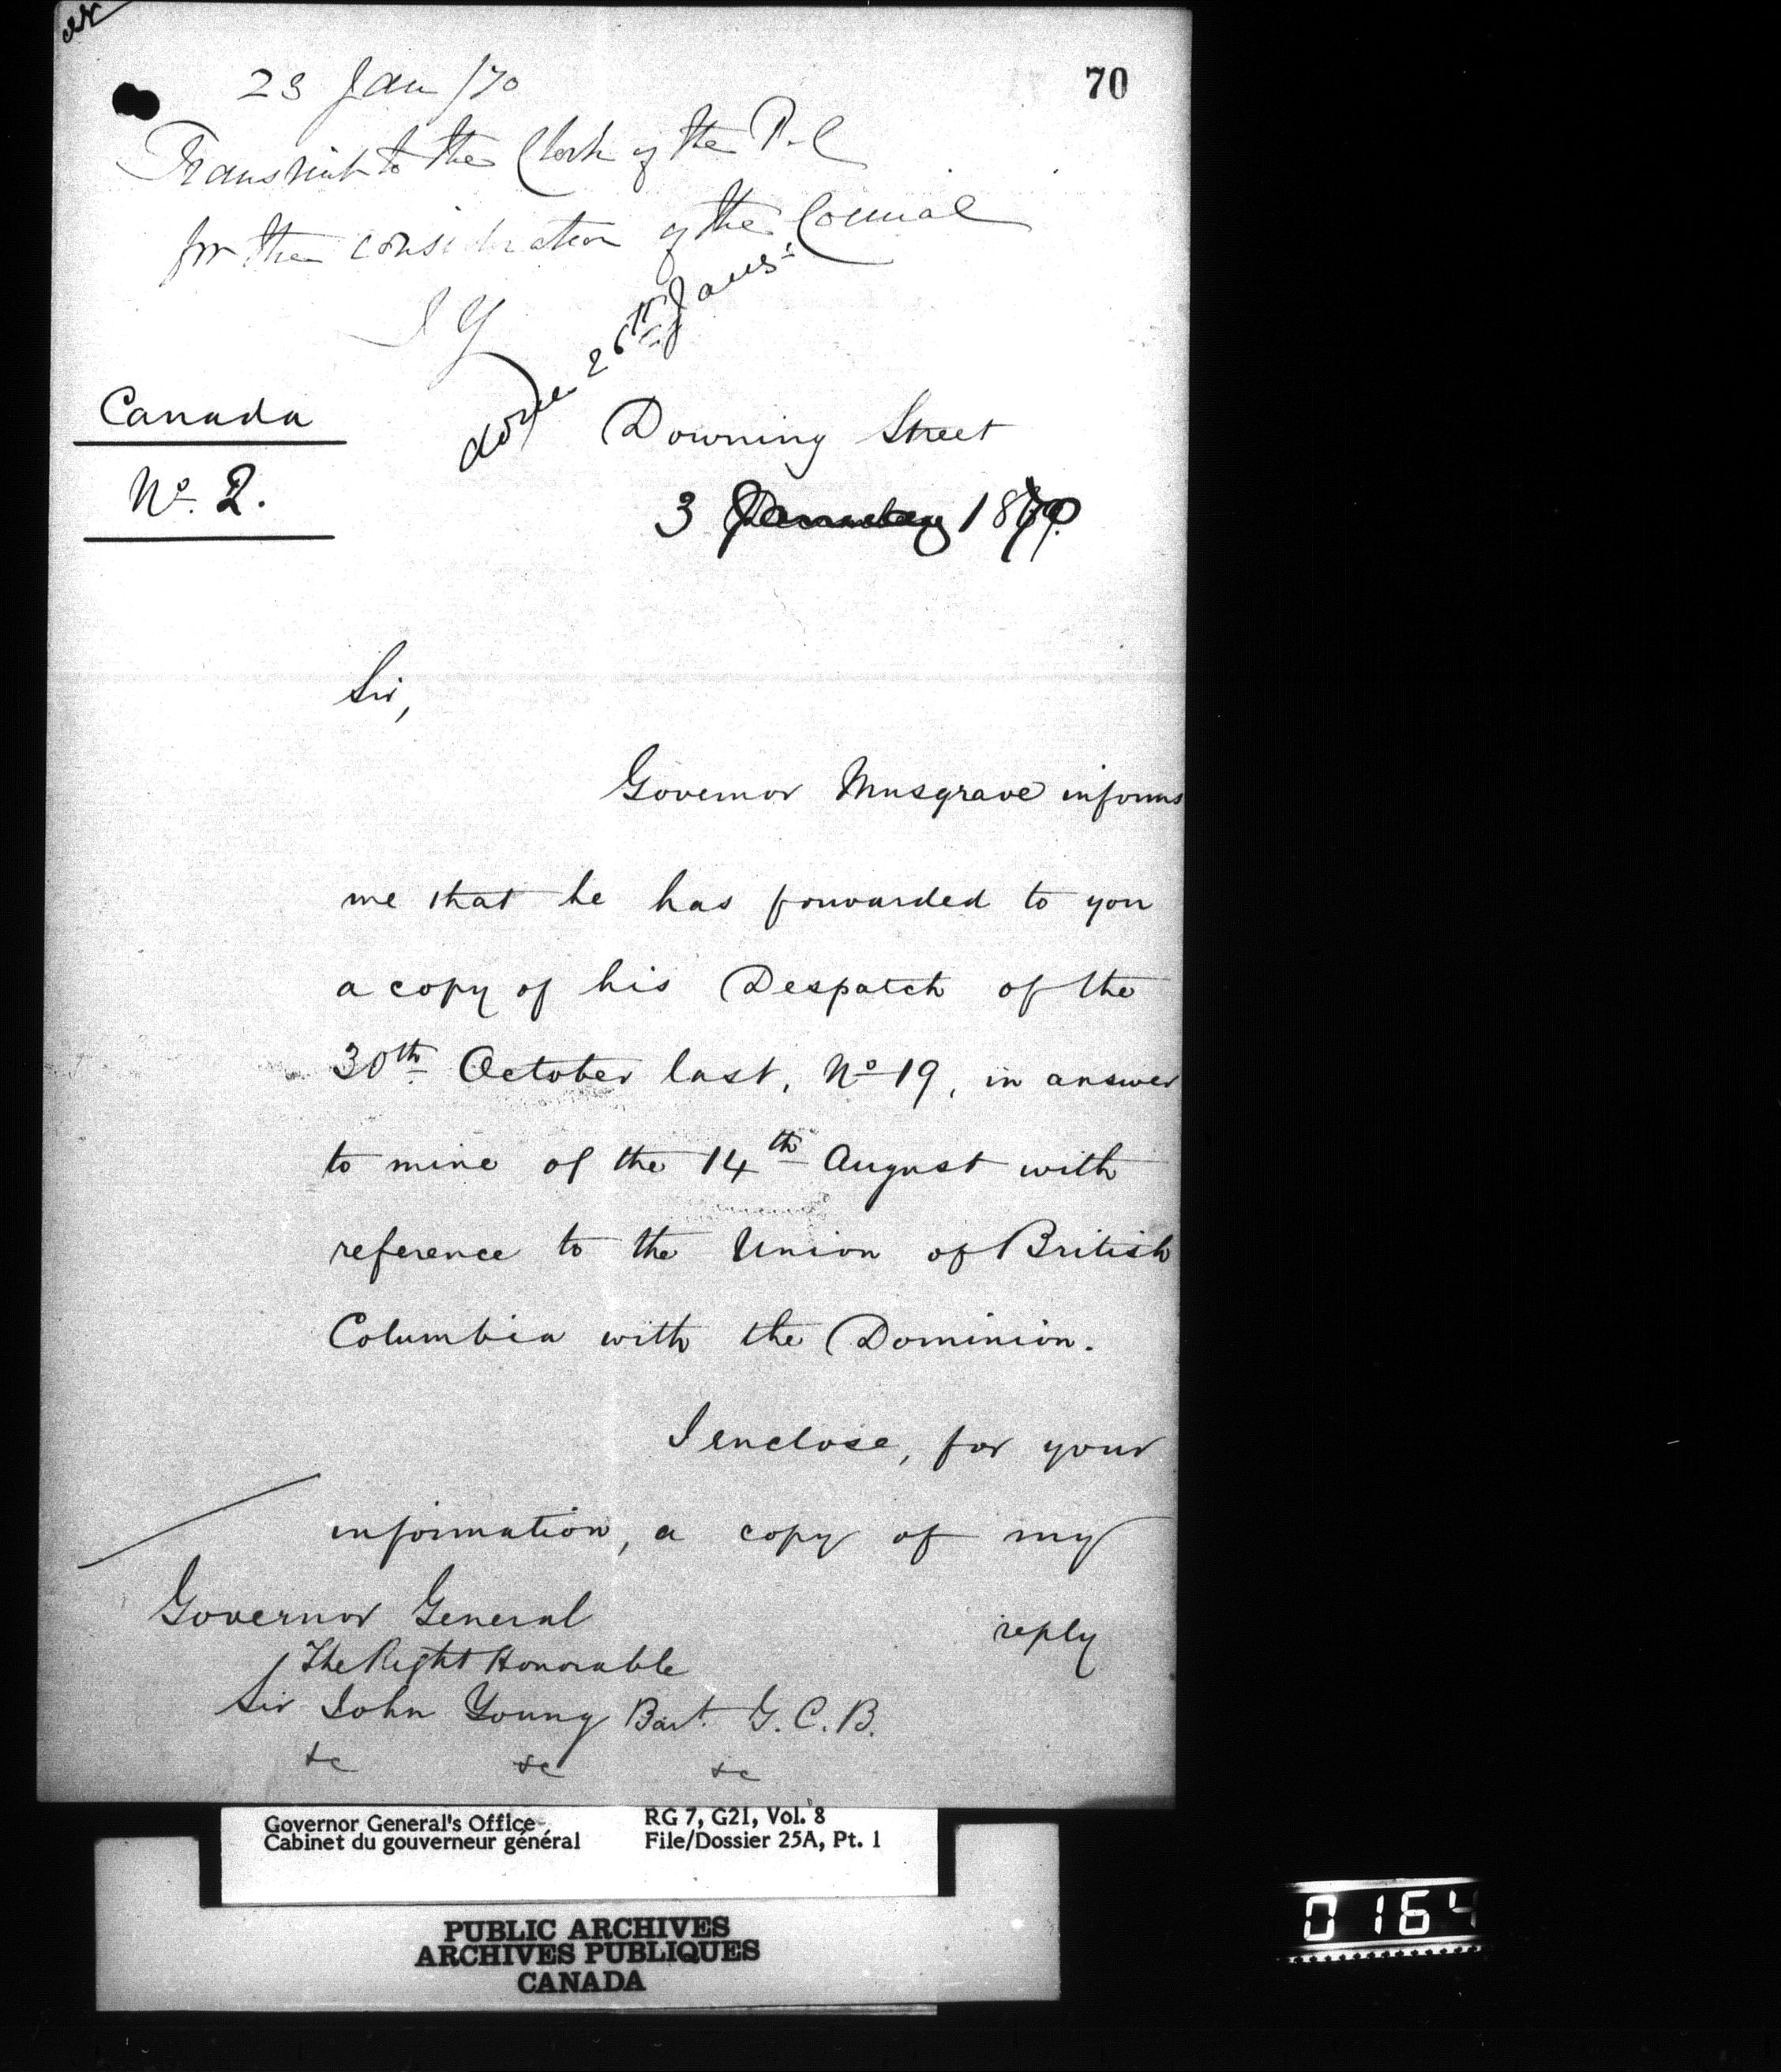 70
23 Jan /70
Transmit to the Clerk of the P.C
for the consideration of the Council
J Y
done 26th Jany
Canada
No. 2.
Downing Street
3 January 1870
Sir,
Governor Musgrave informs
me that he has forwarded to you
a copy of his Despatch of the
30th October last, No 19, in answer
to mine of the 14th August with
reference to the Union of British
Columbia with the Dominion.
I enclose, for your
information, a copy of my
reply
Governor General
The Right Honorable
Sir John Young Bart. G.C.B.
&c &c &c
Governor General's Office
Cabinet du gouverneur général
RG 7, G21, Vol. 8
File/Dossier 25A, Pt. 1
PUBLIC ARCHIVES
ARCHIVES PUBLIQUES
CANADA
0164